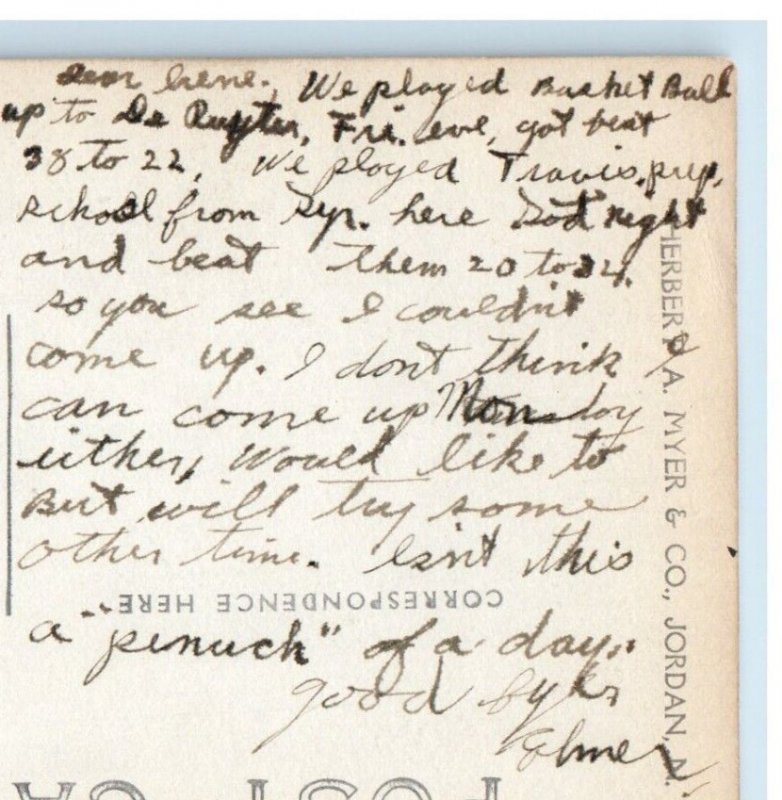 Dear Irene., We played Basket Ball
up to De Ruyter, Fri. eve, got beat
38 to 22, We played Travis, prep,
school from Syr. here Sat night
and beat them 20 to 34.
so you see I couldn't
come up. I dont think I
can come up Monday
either, Would like to
But will try some
other time. Isn't this
CORRESPONDENCE HERE
a "penuch" of a day.
good bye
Elmer
HERBERT A. MYER & CO., JORDAN, N.
POST CA